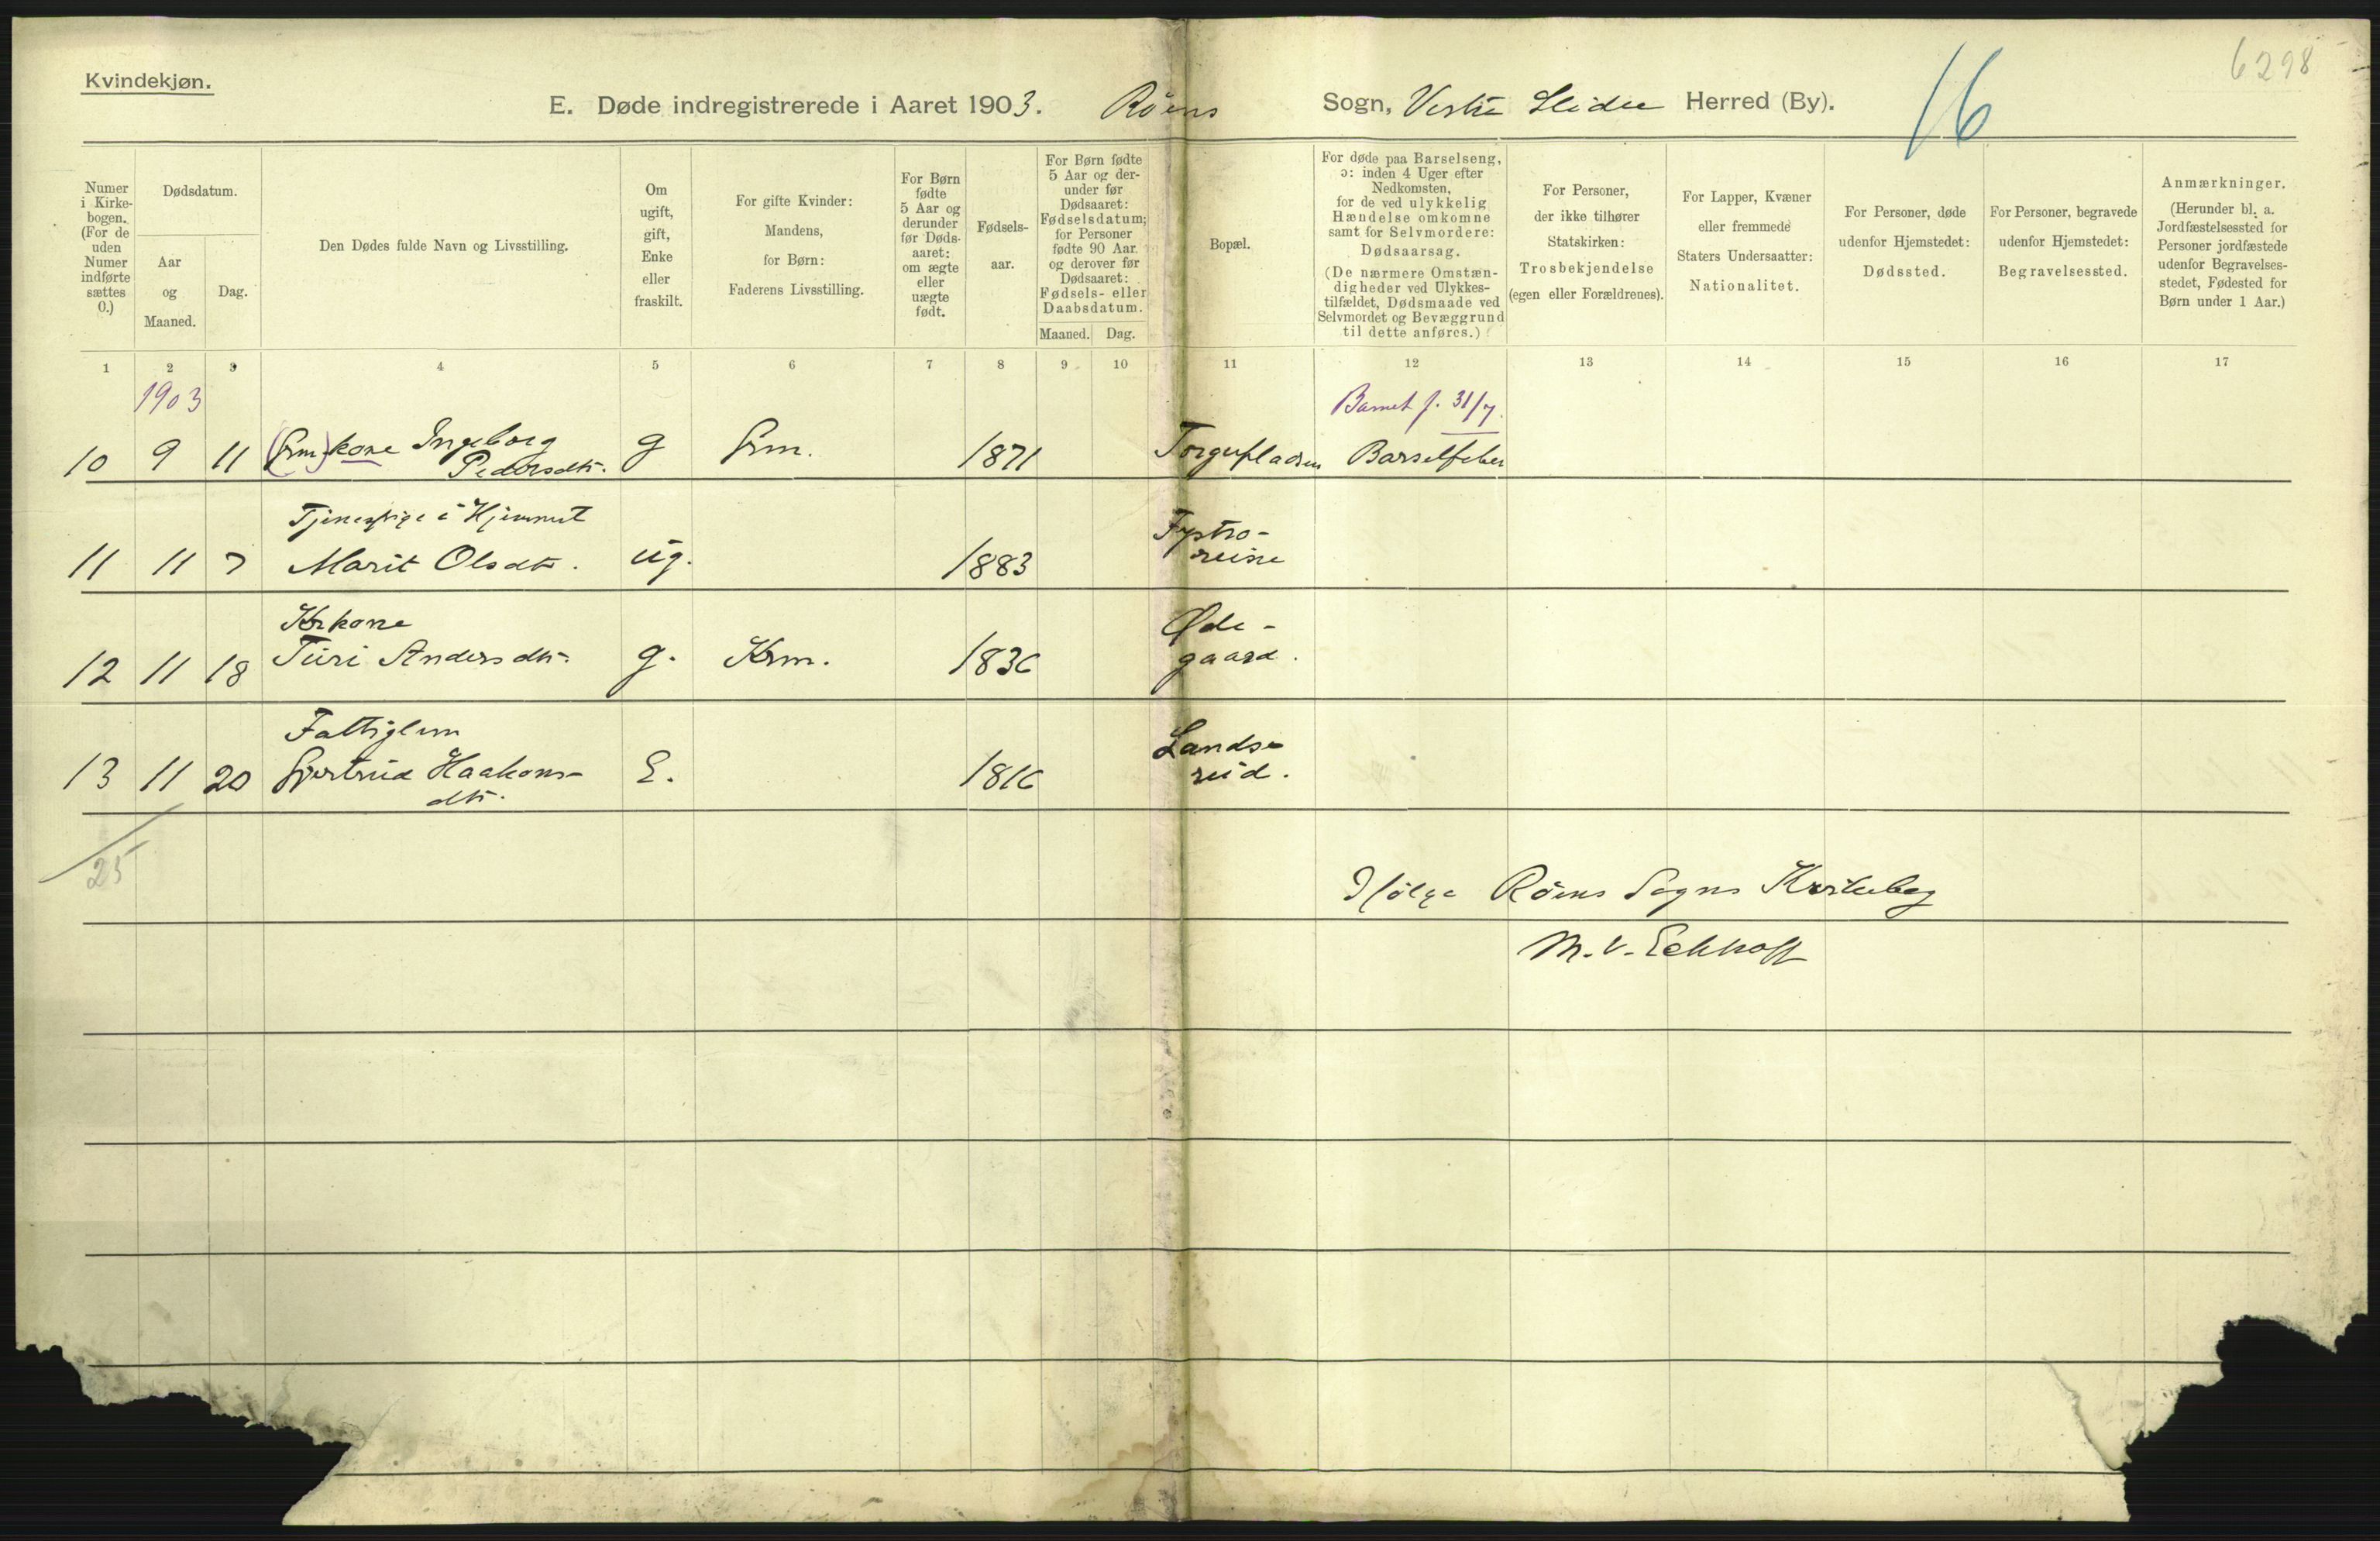 Kvindekjøn.
6298
16
E. Døde indregistrerede i Aaret 1903. Røens Sogn, Vestre Slidre Herred (By).
Numer
i Kirke-
bogen.
(For de
uden
Numer
indførte
sættes
0.)
Dødsdatum.
Aar
og
Maaned.
Dag.
Den Dødes fulde Navn og Livsstilling.
Om
ugift,
gift,
Enke
eller
fraskilt.
For gifte Kvinder:
Mandens,
for Børn:
Faderens Livsstilling.
For Børn
fødte
5 Aar og
derunder
før Døds-
aaret:
om ægte
eller
uægte
født.
Fødsels-
aar.
For Børn fødte
5 Aar og der-
under før
Dødsaaret:
Fødselsdatum;
for Personer
fødte 90 Aar
og derover før
Dødsaaret:
Fødsels- eller
Daabsdatum.
Maaned. Dag.
Bopæl.
For døde paa Barselseng,
ɔ: inden 4 Uger efter
Nedkomsten,
for de ved ulykkelig
Hændelse omkomne
samt for Selvmordere:
Dødsaarsag.
(De nærmere Omstæn-
digheder ved Ulykkes-
tilfældet, Dødsmaade ved
Selvmordet og Bevæggrund
til dette anføres.)
For Personer,
der ikke tilhører
Statskirken:
Trosbekjendelse
(egen eller Forældrenes).
For Lapper, Kvæner
eller fremmede
Staters Undersaatter:
Nationalitet.
For Personer, døde
udenfor Hjemstedet:
Dødssted.
For Personer, begravede
udenfor Hjemstedet:
Begravelsessted.
Anmærkninger.
(Herunder bl. a.
Jordfæstelsessted for
Personer jordfæstede
udenfor Begravelses-
stedet, Fødested for
Børn under 1 Aar.)
1 2 3 4 5 6 7 8 9 10 11 12 13 14 15 16 17
1903
Barnet f. 31/7.
10 9 11 (Grm)kone Ingeborg g Grm. 1871 Barselfeber
Pedersdtr.
Tjenestpige i Hjemmet
11 11 7 Marit Olsdtr. ug. 1883
Krkone
Øde-
12 11 18 Turi Andersdtr. g. Krm. 1836 gaard.
Fattiglem
Lands-
13 11 20 Gjertrud Haakons- E. 1816 rud.
dtr.
25
Ifølge Røens Sogns Kirkebog
M. V. Eckhoff